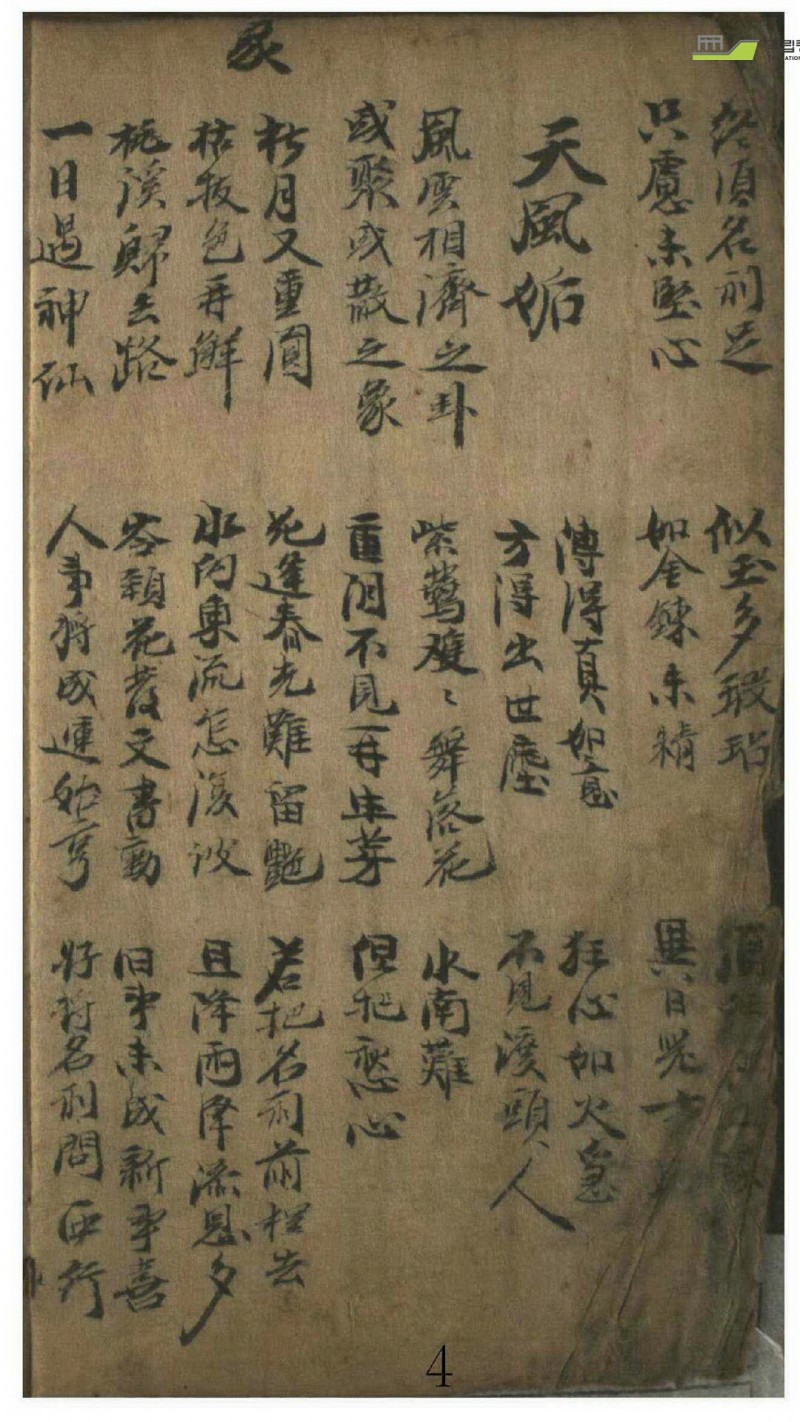 終須名利足
只慮未堅心
天風姤
風雲相濟之卦
或聚或散之象
彖
朽月又重圓
枯枝色再鮮
桃溪歸去路
一日遇神仙
似玉多瑕玷
如金鍊未精
得真如意
方得出世塵
紫鶯雙〻舞落花
重泪不見再生芽
花逢春光難留艶
水向東流怎復波
岩頭花發文書動
人事將成運始亨
異日
狂心如火急
不見溪頭人
水南難
但把愁心
若把名利前程去
且降雨降添恩多
旧事未成新事喜
好將名利問西行
4